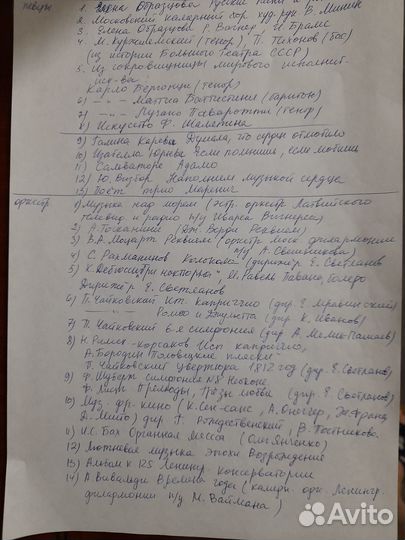 певцы
1. Елена Образцова Русские песни и
2. Московский камерный хор худ. рук В. Минин
3. Елена Образцова Р. Вагнер И. Брамс
4. М. Куржиямский (тенор), П. Тихонов (бас)
(из истории Большого театра СССР)
5. Из сокровищницы мирового исполнит.
иск-ва:
Карло Бергонци (тенор)
6) —"— Маттиа Баттистини (баритон)
7) —"— Лучано Паваротти (тенор)
8) Искусство Ф. Шаляпина
9) Галина Карева Думала, что сердце отлюбило
10) Изабелла Юрьева Если помнишь, если любишь
11) Сальваторе Адамо
12) Ю. Визбор Наполним музыкой сердца
13) Поёт трио Маренич
оркестр
1) Музыка над морем (эстр. оркестр Латвийского
телевид. и радио п/у Ивара Вигнерса)
2) А. Тосканини (Дж. Верди Реквием)
3) В.А. Моцарт Реквием (оркестр моск. филармонии
п/у А. Свешникова)
4) С. Рахманинов Колокола (дирижёр Е. Светланов
5) К. Дебюсси три ноктюрна, М. Равель Павана, Болеро
Дирижёр Е. Светланов
6) П. Чайковский Ит. каприччио (дир. Е. Мравинский)
—"— Ромео и Джульетта (дир. К. Иванов)
7) П. Чайковский 6-я симфония (дир. А. Мелик-Пашаев)
8) Н. Римск-корсаков Исп каприччио,
А. Бородин Половецкие пляски
П. Чайковский Увертюра 1812 год (дир. Е. Светланов)
9) Ф. Шуберт симфония №8 Неоконч.
Ф. Лист Прелюды, Грёзы любви (дир. Е. Светланов)
10) Муз. фр. кино (К. Сен-санс, А. Онеггер, Ж. Франсе
Д. Мийо) дир. Г. Рождественский, В. Постникова
11) И.С. Бах Органная месса (Олег Янченко)
12) Лютневая музыка эпохи Возрождения
13) Альбом к 125 Ленингр. консерватории
14) А. Вивальди Времена года (камерн. орк. Ленингр.
филармонии п/у М. Ваймана)
Avito